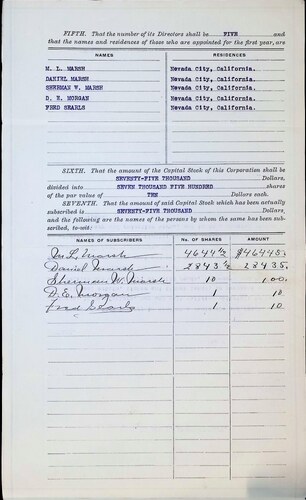 FIFTH. That the number of its Directors shall be FIVE and
that the names and residences of those who are appointed for the first year, are
NAMES RESIDENCES
M. L. MARSH Nevada City, California.
DANIEL MARSH Nevada City, California.
SHERMAN W. MARSH Nevada City, California.
D. E. MORGAN Nevada City, California.
FRED SEARLS Nevada City, California.
SIXTH. That the amount of the Capital Stock of this Corporation shall be
SEVENTY-FIVE THOUSAND Dollars,
divided into SEVEN THOUSAND FIVE HUNDRED shares
of the par value of TEN Dollars each.
SEVENTH. That the amount of said Capital Stock which has been actually
subscribed is SEVENTY-FIVE THOUSAND Dollars,
and the following are the names of the persons by whom the same has been sub-
scribed, to-wit:
NAMES OF SUBSCRIBERS No. OF SHARES AMOUNT
M. L. Marsh 4644 1/2 $46445.
Daniel Marsh 2843 1/2 28435.
Sherman W. Marsh 10 100.
D. E. Morgan 1 10.
Fred Searls 1 10.